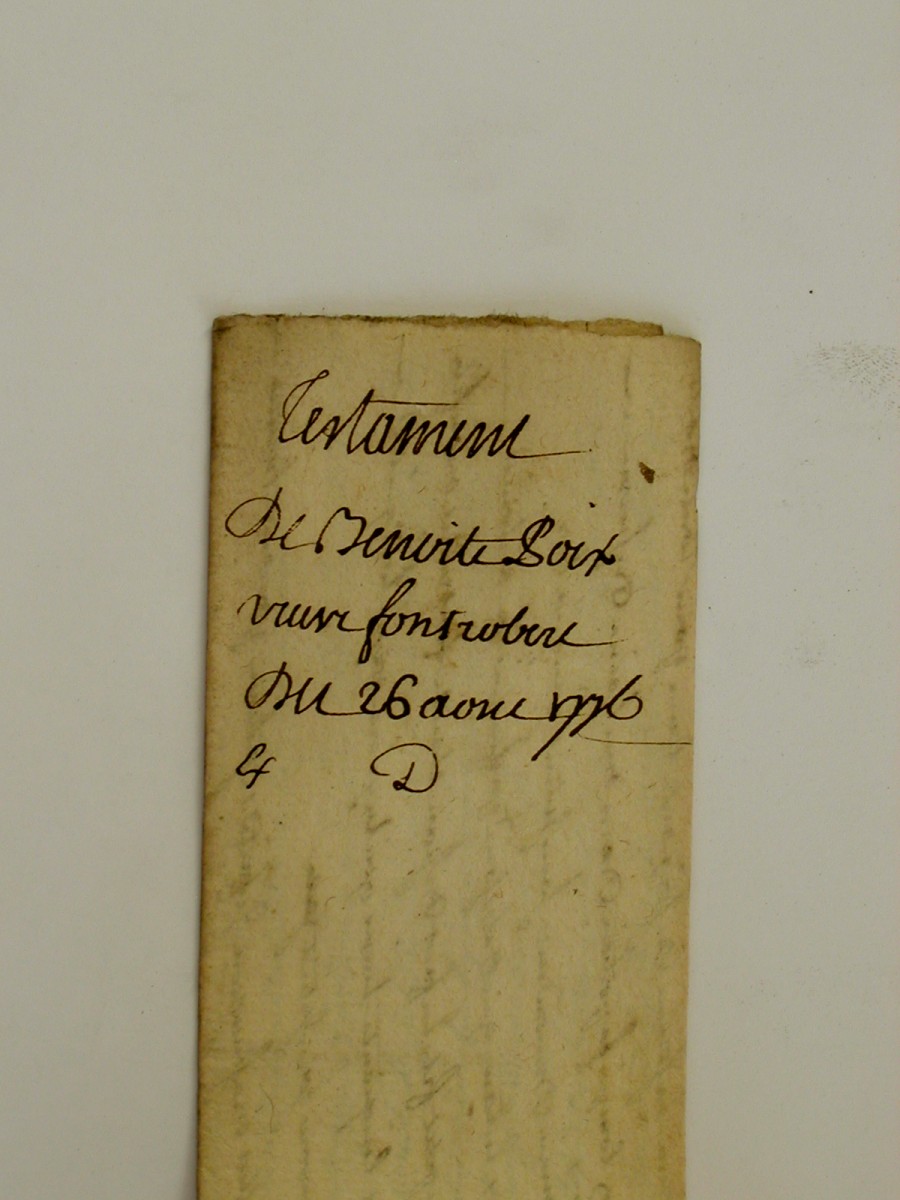 Testament
De Benoite Poix
veuve fontrobert
Du 26 aout 1776
D